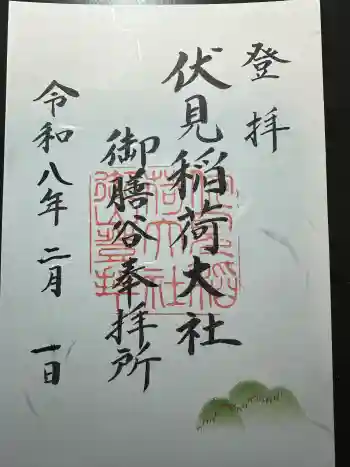 登拝
伏見稲荷大社
御膳谷奉拝所
令和八年二月一日